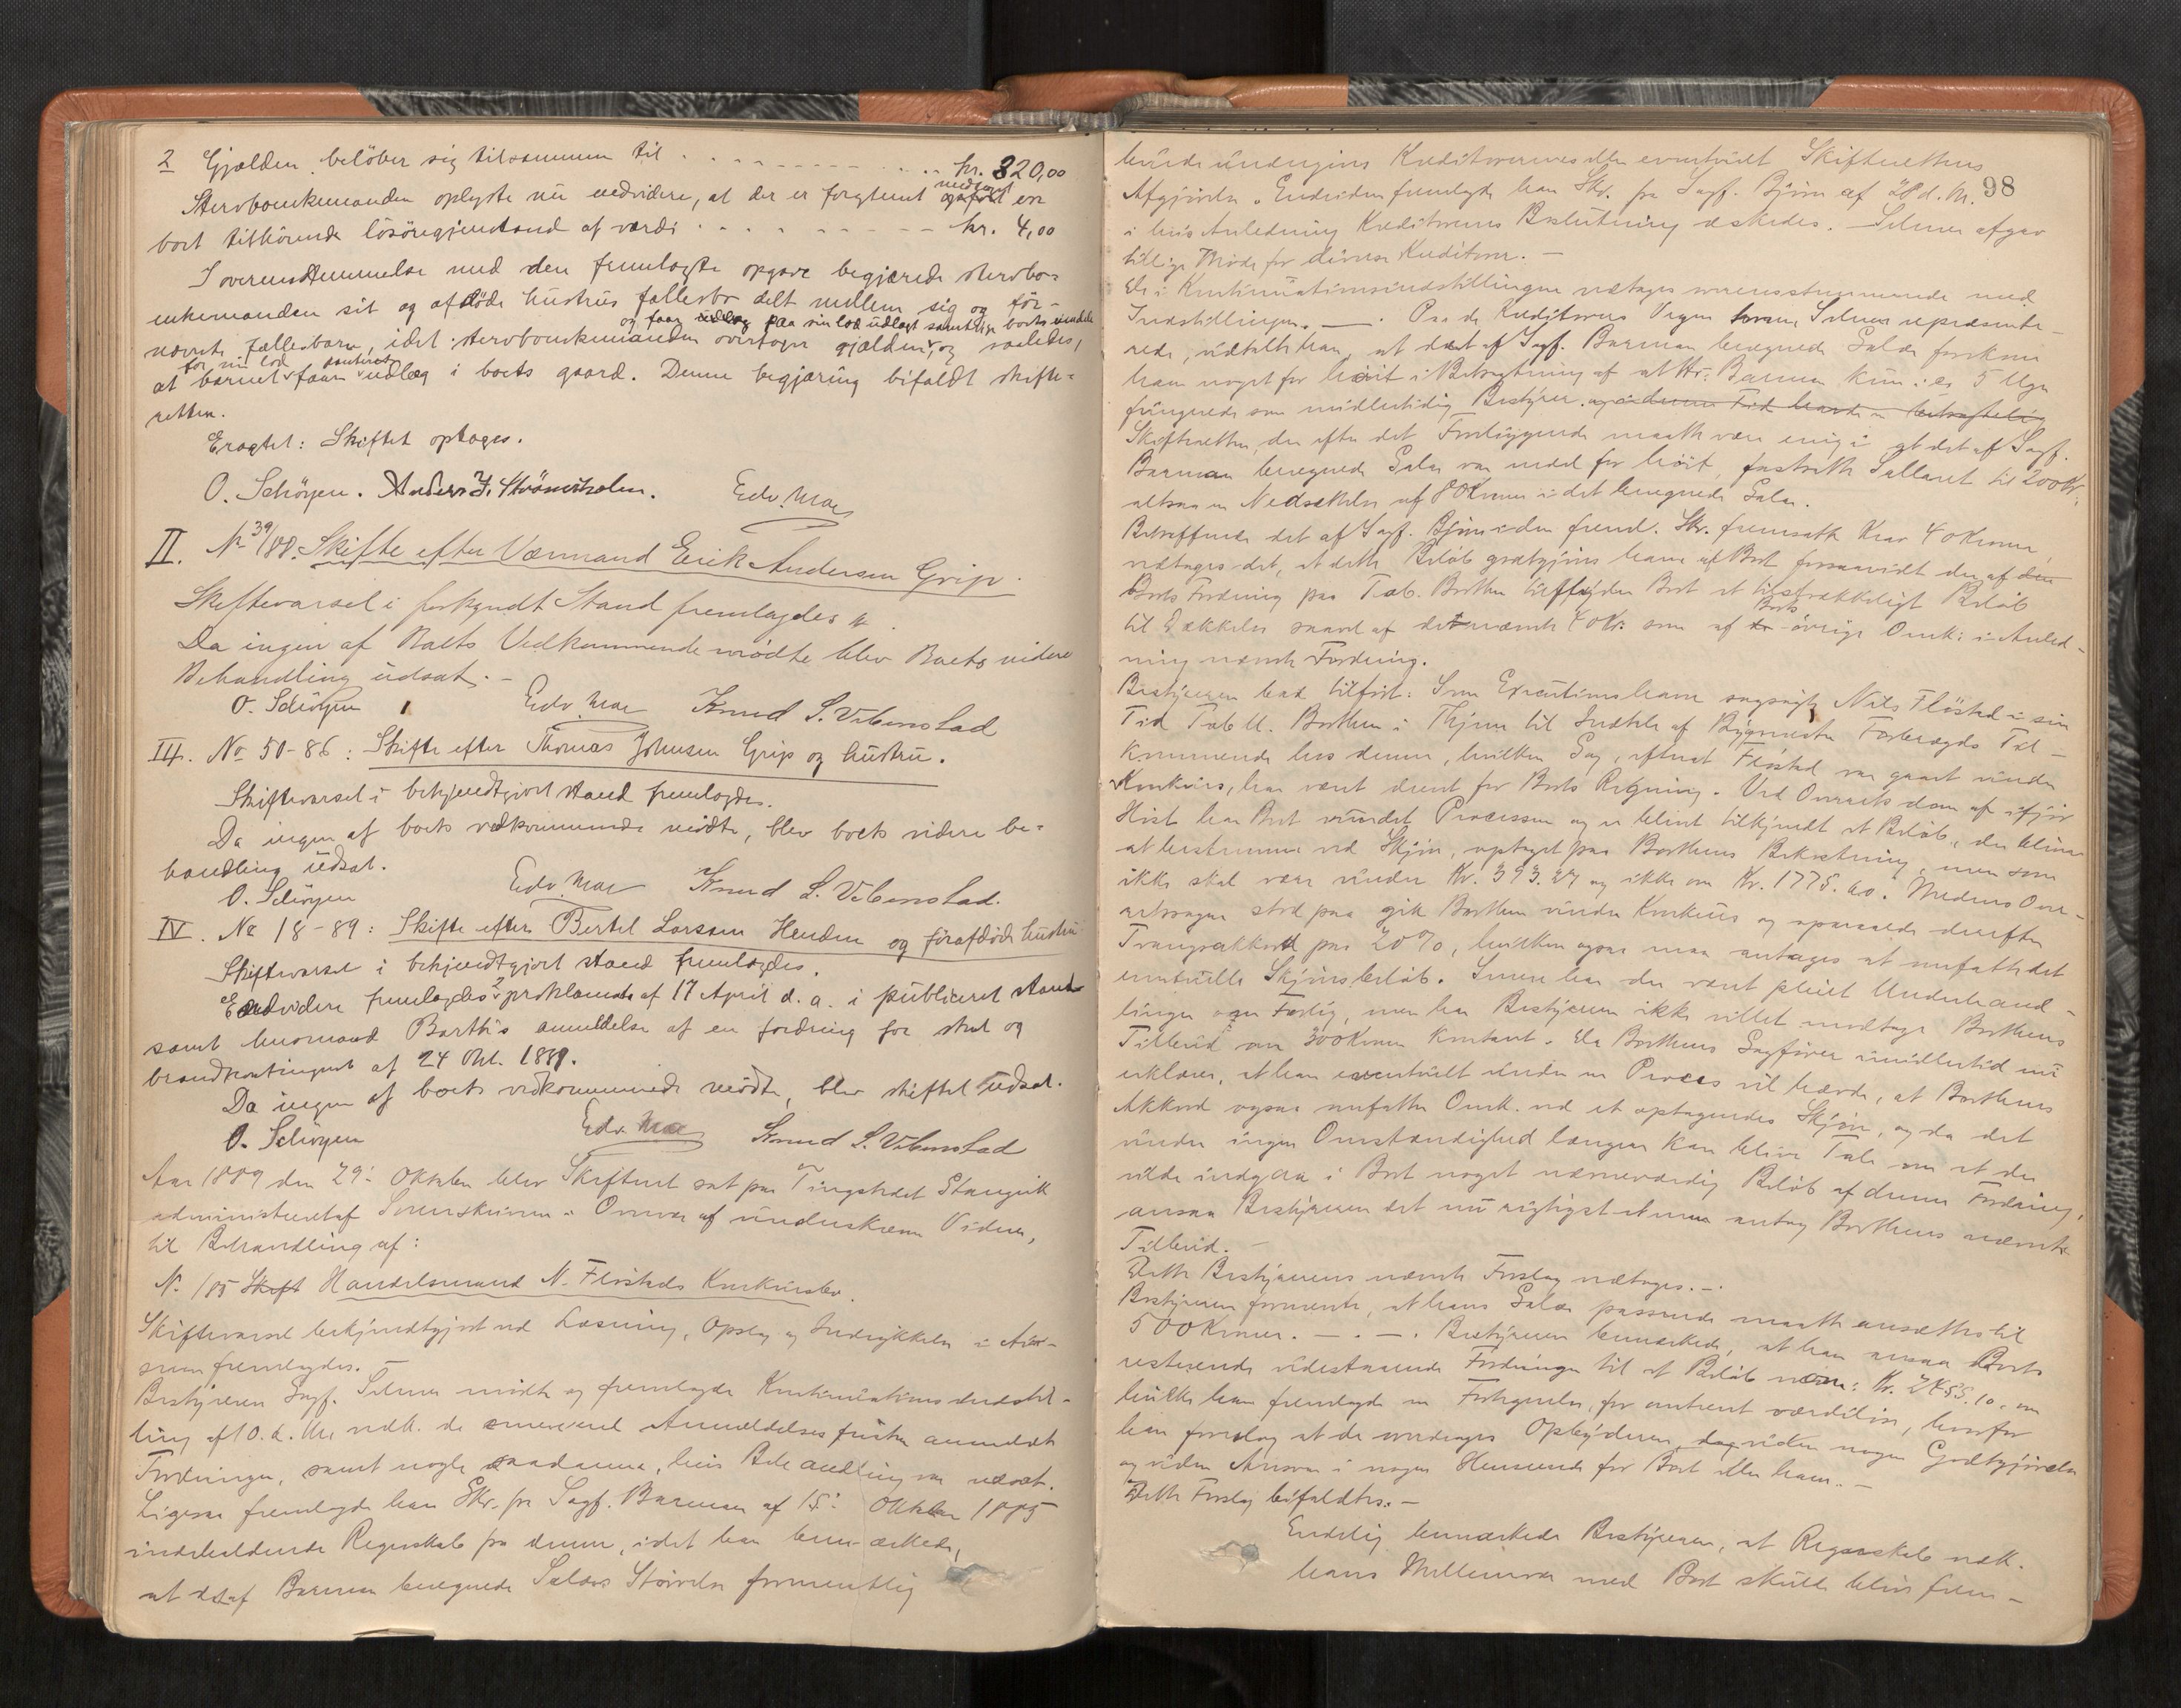 2 Gjælden belöber sig tilsammen til . . . . . . . . . . . kr. 320,00
Stervboenkemanden oplyste nu endvidere, at der er forglemt medtaget en
boet tilhörende lösöregjenstand af værdi . . . . . . . . . kr. 4,00
I overensstemmelse med den fremlagte opgave begjærede stervbo-
enkemanden sit og afdöde hustrus fællesbo delt mellem sig og för-
og faar paa sin lod udlagt samtlige boets
nævnte fællesbarn, idet stervboenkemanden overtager gjælden, og saaledes,
for sin lod
at barnet faar udlæg i boets gaard. Denne begjæring bifaldt skifte-
retten.
Eragtet: Skiftet optages.
O. Schöyen. Anders J. Strömsholm. Edv. Moe
II. No 39/88. Skifte efter Værmand Erik Andersen Grip.
Skiftevarsel i forkyndt Stand fremlagdes.
Da ingen af Boets Vedkommende mödte blev Boets videre
Behandling udsat. -
O. Schöyen Edv. Moe Knud S. Vebenstad
III. No 50-86: Skifte efter Thomas Johnsen Grip og hustru.
Skiftevarsel i bekjendtgjort stand fremlagdes.
Da ingen af boets vedkommende mödte, blev boets videre be-
handling udsat.
O. Schöyen Edv. Moe Knud S. Vebenstad.
IV. No 18-89: Skifte efter Bertel Larssen Henden og förafdöde hustru
Skiftevarsel i bekjendtgjort stand fremlagdes.
Endvidere fremlagdes 2 proklamata af 17 April d. a. i publiceret stand
samt lensmand Barth's anmeldelse af en fordring for skat og
brandkontingent af 24 Okt. 1889.
Da ingen af boets vedkommende mödte, blev skiftet udsat.
O. Schöyen Edv. Moe Knud S. Vebenstad
Aar 1889 den 29: Oktober blev Skifteret sat paa Tingstedet Stangvik
administreret af Sorenskriveren i Overvær af underskrevne Vidner,
til Behandling af:
No. /85 Skift Handelsmand N. Fløstads Konkursbo.
Skiftevarsel bekjendtgjort ved Læsning, Opslag og Indrykkelse i Avi-
sen fremlagdes. -
Bestyreren Sagf. Selmer mødte og fremlagde Kontinuationsindstil-
ling af 10. d. M. vedk. de senere end Anmeldelsesfristen anmeldte
Fordringer, samt nogle saadanne, hvis Behandling var udsat.
Ligesaa fremlagde han Skr. fra Sagf. Barman af 15: Oktober 1885
indeholdende Regnskab fra denne, idet han bemærkede,
at det af Barman beregnede Salærs Størrelse formentlig
98
burde undergives Kreditorernes eller eventuelt Skifterettens
Afgjørelse. Endvidere fremlagde han Skr. fra Sagf. Bjørn af 28 d. M.
i hvis Anledning Kreditorernes Beslutning æskedes. - Selmer afgav
tillige Møde for diverse Kreditorer. -
De i Kontinuationsindstillingen vedtages overensstemmende med
Indstillingen. - Paa de Kreditorers Vegne hvem Selmer repræsente-
rede, udtalte han, at det af Sagf. Barman beregnede Salær forekom
ham noget for høit i Betragtning af at Hr. Barman kun i ca 5 Uger
fungerede som midlertidig Bestyrer og i denne Tid havde en
Skifteretten, der efter det Foreliggende maatte være enig i at det af Sagf.
Barman beregnede Salær var meget for høit, fastsatte Sallaret til 200 Kr.
altsaa en Nedsættelse af 80 Kroner i det beregnede Salær.
Betræffende det af Sagf. Bjørn i den freml. Skr. fremsatte Krav 40 Kroner,
vedtages det, at dette Beløb godtgjøres ham af Boet forsaavidt der af den
Boets Fordring paa Tab. Borthen tilflyder Boet et tilstrækkeligt Beløb
Boets
til Dækkelse saavel af det nævnte 40 Kr. som af de øvrige Omk: i Anled-
ning nævnte Fordring.
Bestyreren bad tilført: Som Executionshaver sagsøgte Nils Fløstad i sin
Tid Tab M. Borthen i Thjem til Indtale af Bygmester Forbregds Til-
kommende hos denne, hvilken Sag, efterat Fløstad var gaaet under
Konkurs, har været drevet for Boets Regning. Ved Overretsdom af ifjor
Høst har Boet vundet Processen og er blevet tilkjendt et Beløb, der bliver
at bestemme ved Skjøn, optaget paa Borthens Bekostning, men som
ikke skal være under Kr. 393.27 og ikke over Kr. 1775.60. Medens Over-
retssagen stod paa gik Borthen under Konkurs og opnaaede derefter
Tvangsakkord paa 20 %, hvilken ogsaa maa antages at omfatte det
eventuelle Skjønsbeløb. Senere har der været pleiet Underhand-
linger om Forlig, men har Bestyreren ikke villet modtage Borthens
Tilbud om 300 Kroner kontant. Da Borthens Sagfører imidlertid nu
erklærer, at han eventuelt under en Proces vil hævde, at Borthens
Akkord ogsaa omfatter Omk. ved et optagendes Skjøn, og da det
under ingen Omstændighed længere kan blive Tale om at der
vilde indgaa i Boet noget nævneværdig Beløb af denne Fordring,
ansaa Bestyreren det nu rigtigst at man antog Borthens nævnte
Tilbud. -
Dette Bestyrerens nævnte Forslag vedtages. -
Bestyreren formente, at hans Salær passende maatte ansættes til
500 Kroner. - . - . Bestyreren bemærkede, at han ansaa Boets
resterende udestaaende Fordringer til et Beløb Kr. 2455.10, om
hvilke han fremlagde en Fortegnelse, for omtrent værdiløse, hvorfor
han foreslog at de overdrages Opbyderen, dog uden nogen Godtgjørelse
og uden Ansvar i nogen Henseende for Boet eller ham. -
Dette Forslag bifaldtes. -
Endelig bemærkede Bestyreren, at Regnskab vedk.
hans Mellemvær med Boet skulde blive frem-